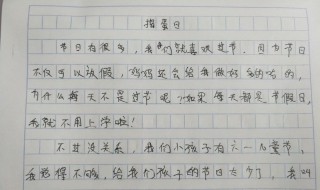 捣蛋日
节日有很多,我们就喜欢过节。因为节日
不仅可以放假,妈妈还会给我做好多好吃的。
为什么每天不是过节呢?如果每天都是节假日,
我就不用上学啦!
不过没关系,我们小孩子有六一儿童节。
我觉得不够,给我们孩子的节日太少了。我